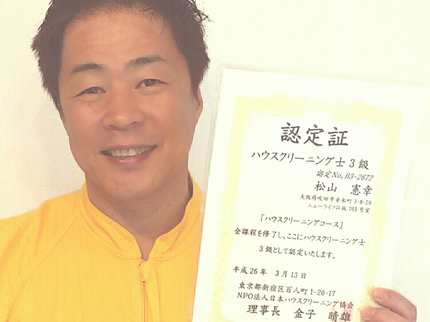 認定証
ハウスクリーニング士3級
認定No,H3-2672
松山 憲幸
大阪府吹田市垂水町3-8-28
ニューライフ江坂703号室
「ハウスクリーニングコース」
全課程を修了し、ここにハウスクリーニング士
3級として認定いたします。
平成26年 3月13日
東京都新宿区百人町1-20-17
NPO法人日本ハウスクリーニング協会
理事長 金子 晴雄